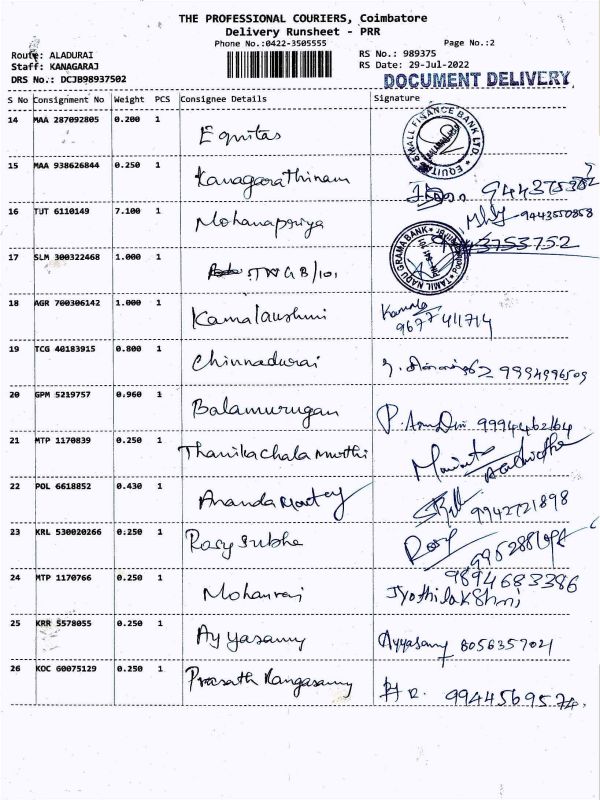 THE PROFESSIONAL COURIERS, Coimbatore
Delivery Runsheet - PRR
Phone No.:0422-3505555 Page No.:2
Route: ALADURAI RS No.: 989375
Staff: KANAGARAJ RS Date: 29-Jul-2022
DRS No.: DCJB98937502 DOCUMENT DELIVERY
S No Consignment No Weight PCS Consignee Details Signature
14 MAA 287092805 0.200 1 Equitas EQUITAS SMALL FINANCE BANK LTD.
15 MAA 938626844 0.250 1 Kanagarathinam
16 TUT 6110149 7.100 1 Mohanapriya 9443550858
17 SLM 300322468 1.000 1 TNGB/101 TAMIL NADU GRAMA BANK
18 AGR 700306142 1.000 1 Kamalakshmi Kamala
9677411714
19 TCG 40183915 0.800 1 Chinnadurai 9994996509
20 GPM 5219757 0.960 1 Balamurugan
21 MTP 1170839 0.250 1 Thanikachalamurthi
22 POL 6618852 0.430 1 9942721898
23 KRL 530020266 0.250 1 Rosy Subha Rosy
24 MTP 1170766 0.250 1 Mohanraj 9894683386
Jyothilakshmi
25 KRR 5578055 0.250 1 Ayyasamy Ayyasamy 8056357021
26 KOC 60075129 0.250 1 Prasath Rangasamy 9944569574.